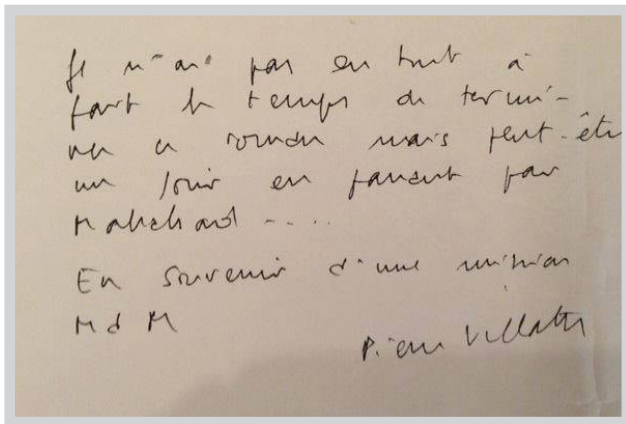 Je n'ai pas eu tout à
fait le temps de termi-
ner ce roman mais peut-être
un jour en passant par
En souvenir d'une mission
M d M
Pierre